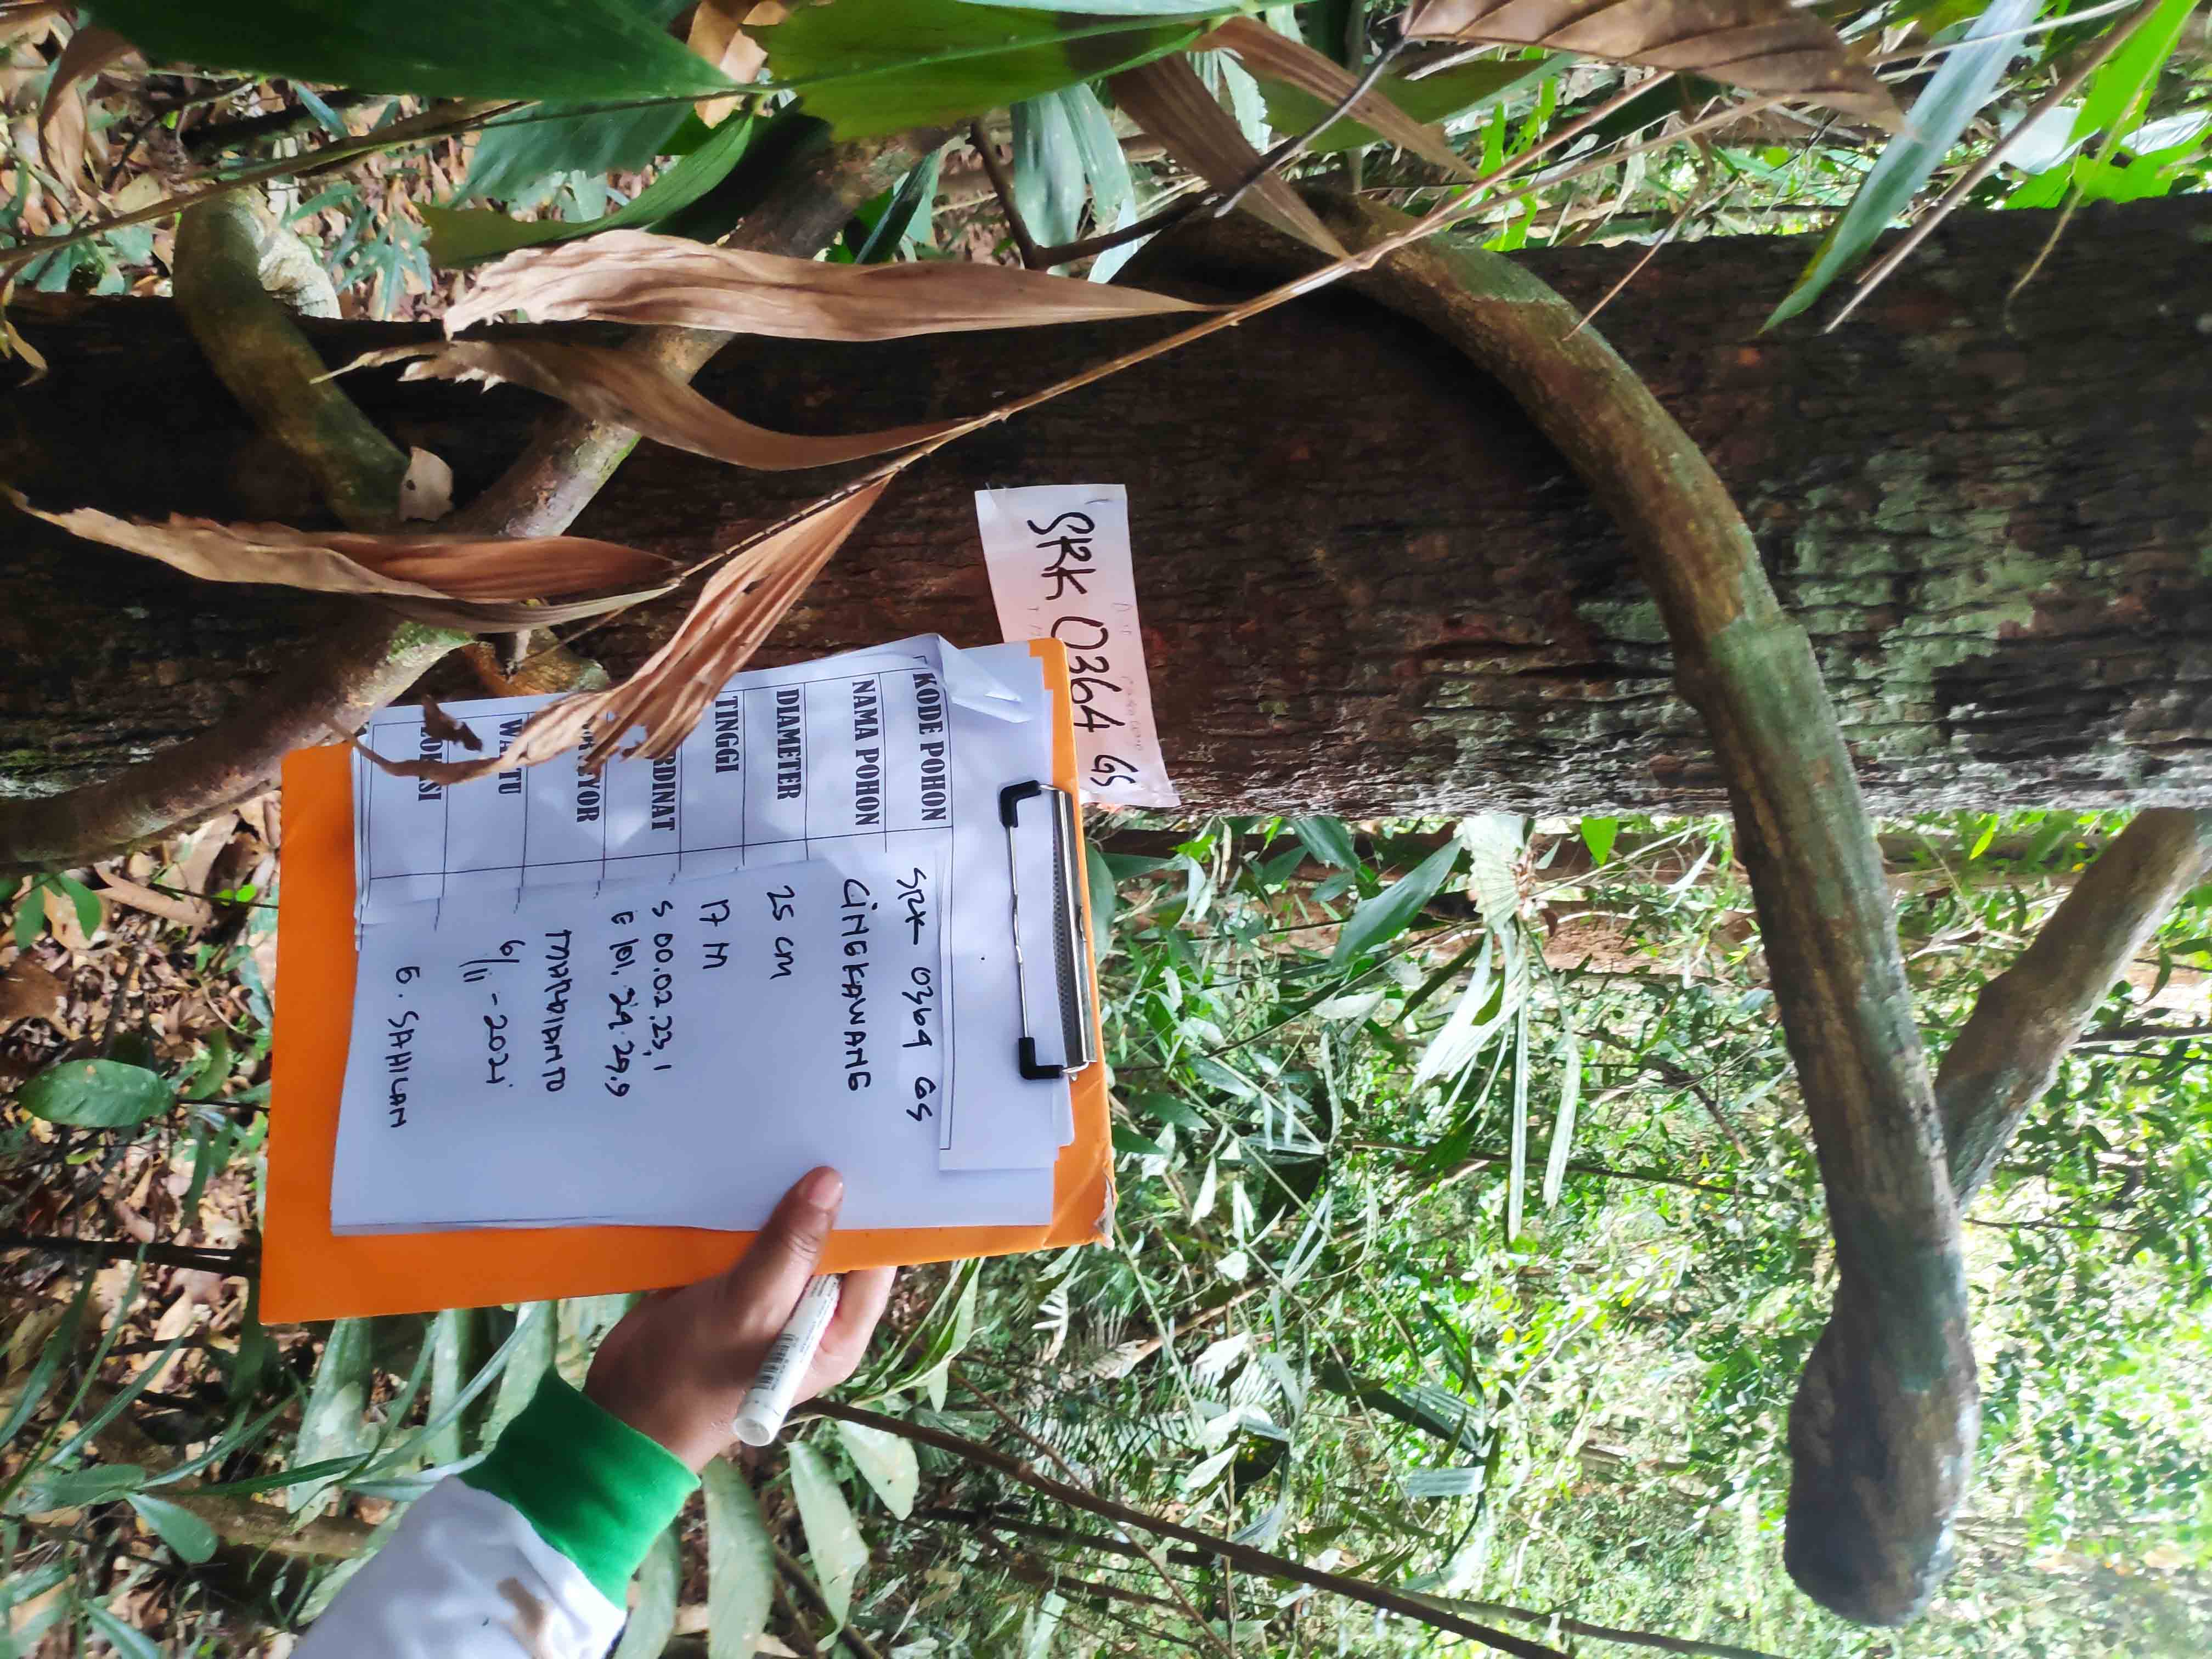 SRK 0364 GS
KODE POHON SRK 0364 GS
NAMA POHON CINGKAWANG
DIAMETER 25 cm
TINGGI 17 M
RDINAT S 00.02.23,1
E 101.29.29,9
YOR
WAKTU 6/11 - 2021
LOKASI G. SAHILAN